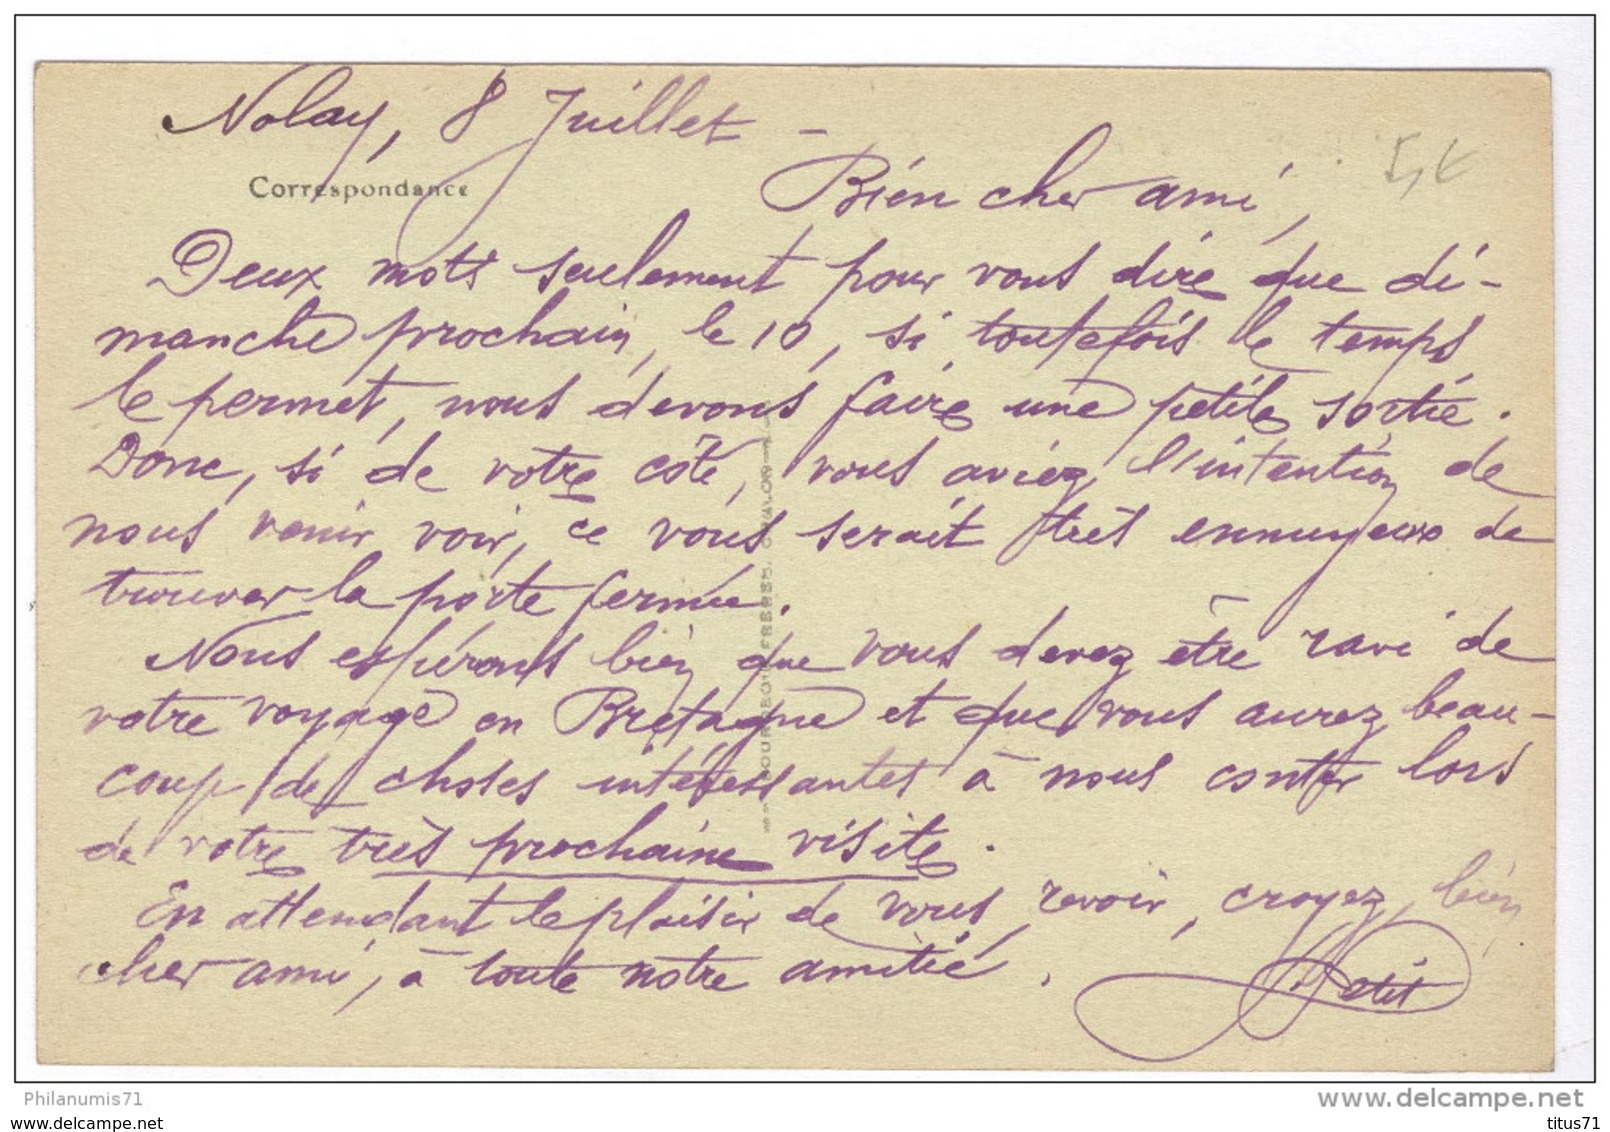 Nolay, 8 Juillet -
Correspondance
Bien cher ami,
Deux mots seulement pour vous dire que di-
manche prochain, le 10, si toutefois le temps
le permet, nous devons faire une petite sortie.
Donc, si de votre côté, vous aviez l'intention de
nous venir voir, ce vous serait très ennuyeux de
trouver la porte fermée.
Nous espérons bien que vous devez être ravi de
votre voyage en Bretagne et que vous aurez beau-
coup de choses intéressantes à nous conter lors
de votre très prochaine visite.
En attendant le plaisir de vous revoir, croyez, bien
cher ami, à toute notre amitié.
Petit
BOURGEOIS FRÈRES, CHALON-S-S
Philanumis71
www.delcampe.net
titus71